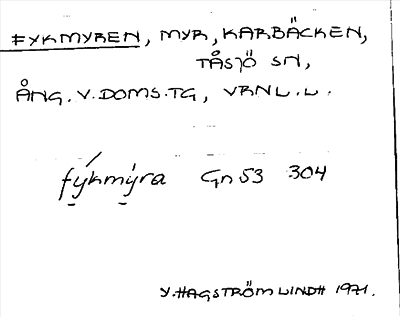 FYKMYREN, MYR, KARBÄCKEN,
TÅSJÖ SN,
ÅNG. V. DOMS. TG, VRNL. L.
fýkmýra Gn 53 304
Y. HAGSTRÖM LINDH 1971.